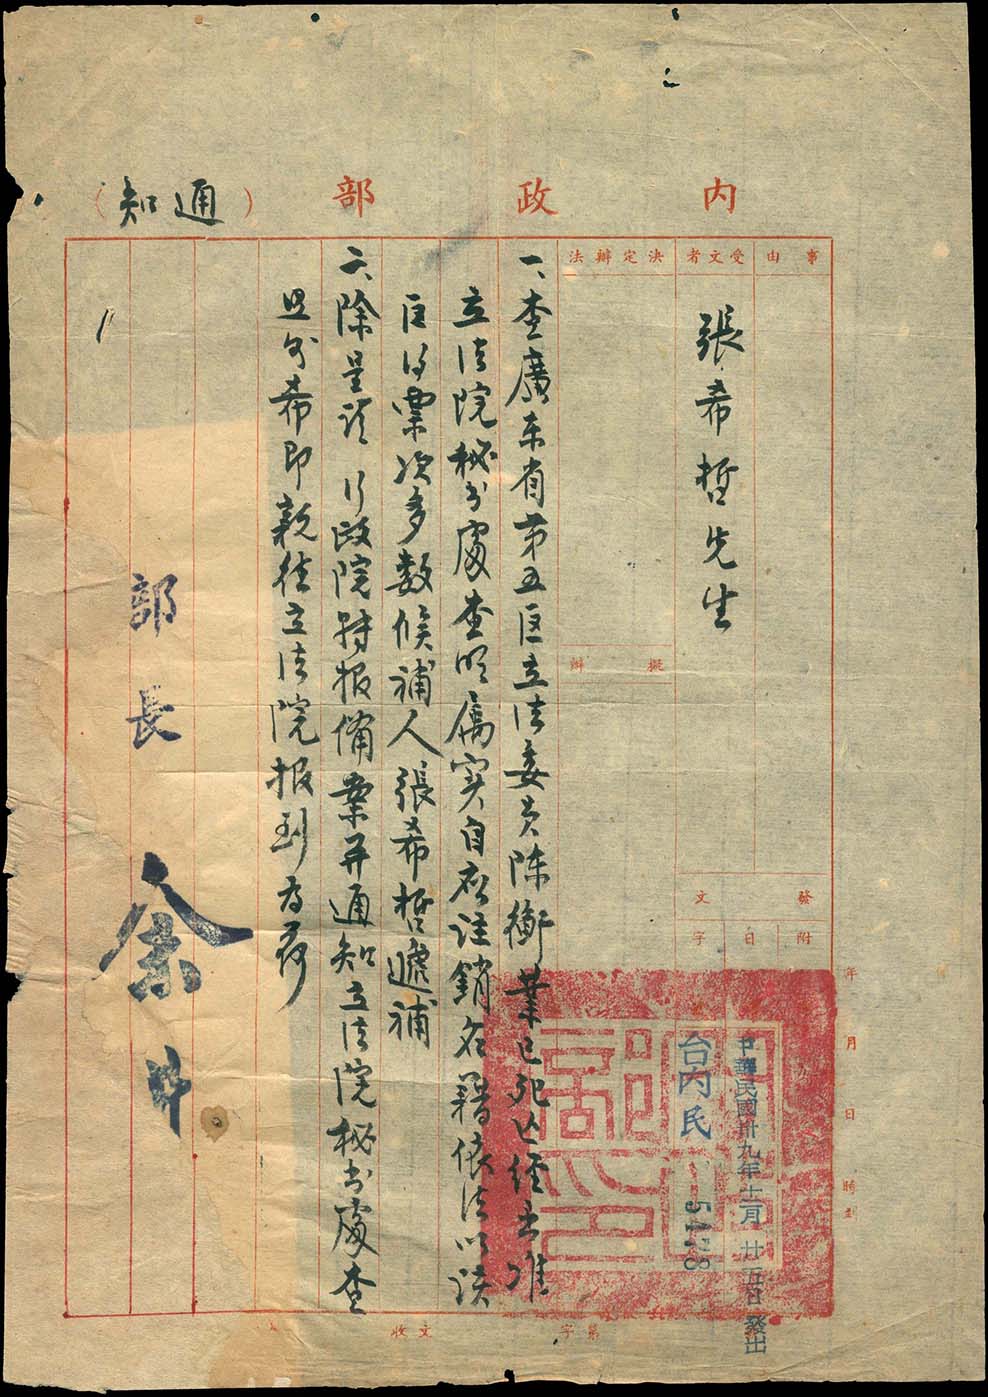 內政部（通知）
事由
受文者
張希哲先生
決定辦法
擬辦
發文
附
日
字
年
月
日
時
中華民國卅九年十一月廿五日發出
台內民
5478
一、查廣东省第五区立法委员陈衡業已死亡經去准
立法院秘书處查明属实自应註銷名籍依法以该
区得票次多数候補人張希哲遞補
二、除呈請行政院转报備案并通知立法院秘书處查
照外希即親往立法院报到为荷
部長 余井
收文
字第